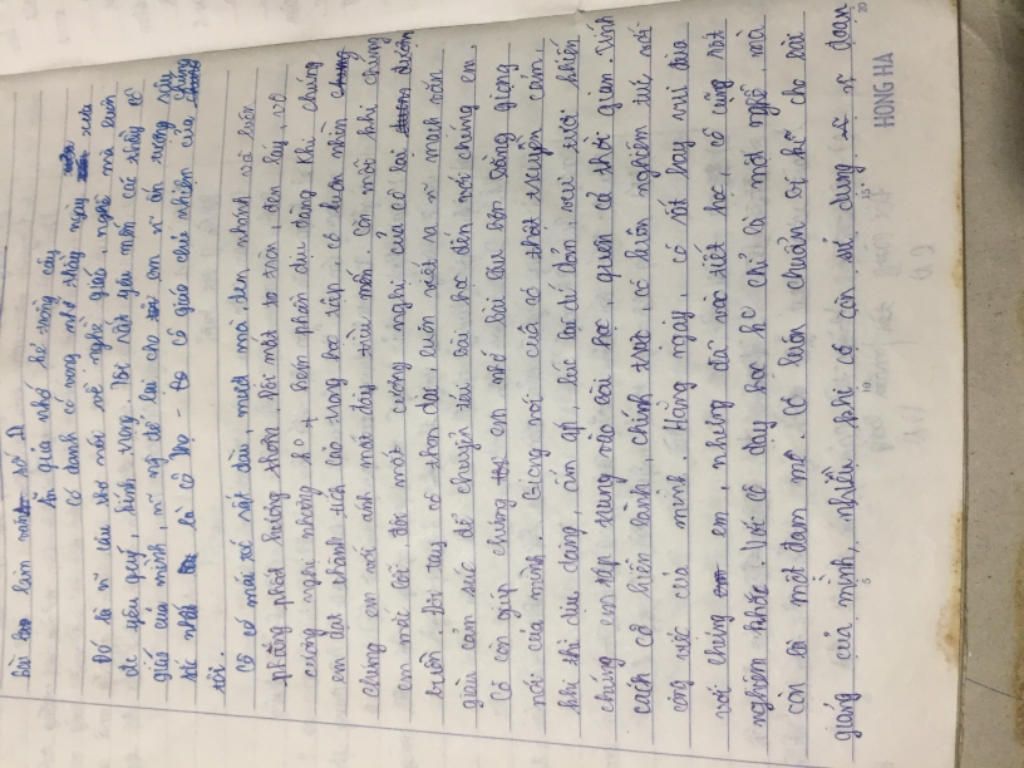 Bài làm văn số 1
Ăn quả nhớ kẻ trồng cây
Có danh có vọng nhớ thầy ngày xưa
Đó là n~ câu thơ nói về nghề giáo, nghề mà luôn
đc yêu quý, kính trọng. Tôi rất yêu mến các thầy cô
giáo của mình, n~ng để lại cho em n~ ấn tượng sâu
sắc nhất là cô giáo chủ nhiệm của chúng
tôi.
Cô có mái tóc rất dài, mượt mà, đen nhánh và luôn
phảng phất hương thơm. Đôi mắt to tròn, đen láy, vô
cùng nghị nhưng k0 + kém phần dịu dàng. Khi chúng
em đạt thành tích cao trong học tập, cô luôn nhìn
chúng em với ánh mắt đầy trìu mến. Còn mỗi khi chúng
em mắc lỗi đôi mắt cương nghị của cô lại
buồn. Đôi tay cô thon dài, luôn viết ra n~ mạch văn
giàu cảm xúc để chuyển tải bài học đến với chúng em.
Cô còn giúp chúng em nhớ bài lâu hơn bằng giọng
nói của mình. Giọng nói của cô thật truyền cảm,
khi thì dịu dàng, ấm áp, lúc lại dí dỏm, vui tươi khiến
chúng em tập trung vào bài học quên cả thời gian. Tính
cách cô hiền lành, chính trực, cô luôn nghiêm túc với
công việc của mình. Hằng ngày, cô rất hay vui đùa
với chúng em, nhưng đã vào tiết học, cô cũng rất
nghiêm khắc. Với cô dạy học k0 chỉ là một nghề, mà
còn là một đam mê. Cô luôn chuẩn bị kĩ cho bài
giảng của mình, nhiều khi cô còn sử dụng n~ đoạn
HONG HA